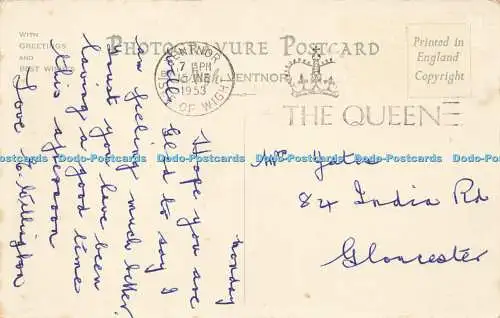 WITH
GREETINGS
AND
BEST WISHES
PHOTOGRAVURE POSTCARD
Printed in
England
Copyright
VENTNOR
7 PM
1953
ISLE OF WIGHT
VENTNOR
THE QUEEN
Monday
Hope you are
well. Glad to say I
am feeling much better.
trust you have been
having a good time
this afternoon
Love
84 India Rd
Gloucester
Dodo-Postcards Dodo-Postcards Dodo-Postcards Dodo-Postcards Dodo-Postcards Dodo-Postcards